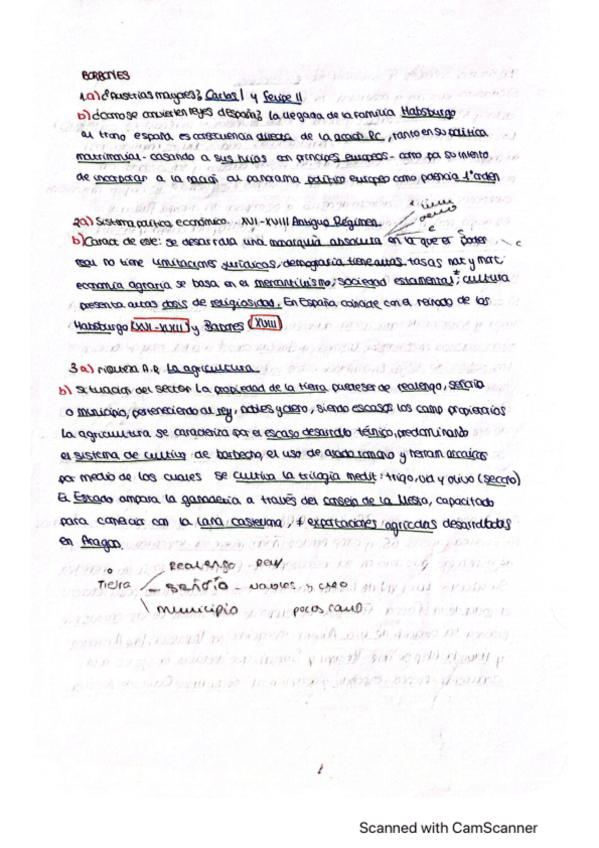 BORBONES
1.a) ¿Austrias mayores? Carlos I y Felipe II
b) ¿cómo se convierten reyes de españa? La llegada de la familia Habsburgo
al trono español es consecuencia directa de la acción RC, tanto en su política
matrimonial - casando a sus hijos con príncipes europeos - como por su intento
de incorporar a la nación al panorama político europeo como potencia 1º orden
2a) Sistema político económico. XVI-XVIII Antiguo Régimen
b) Caract de este: se desarrolla una monarquía absoluta en la que el poder
real no tiene limitaciones jurídicas, demografía tiene altas tasas nat y mort
economía agraria se basa en el mercantilismo, sociedad estamental*; cultura
presenta altas dosis de religiosidad. En España coincide con el reinado de los
Habsburgo (XVI-XVII) y Borbones (XVIII)
3 a) riqueza A.R. La agricultura.
b) Situación del sector La propiedad de la tierra puede ser de realengo, señorío
o municipio, perteneciendo al rey, nobles y clero, siendo escasos los camp propietarios
La agricultura se caracteriza por el escaso desarrollo técnico, predominando
el sistema de cultivo de barbecho, el uso de arado romano y herram arcaicas
por medio de los cuales se cultiva la trilogía medit: trigo, vid y olivo (secano)
El Estado ampara la ganadería a través del consejo de la Mesta, capacitado
para comerciar con la lana castellana, + exportaciones agrícolas desarrolladas
en Aragon.
Tierra
realengo - rey
señorío - nobles y clero
municipio pocos camp
1
Scanned with CamScanner